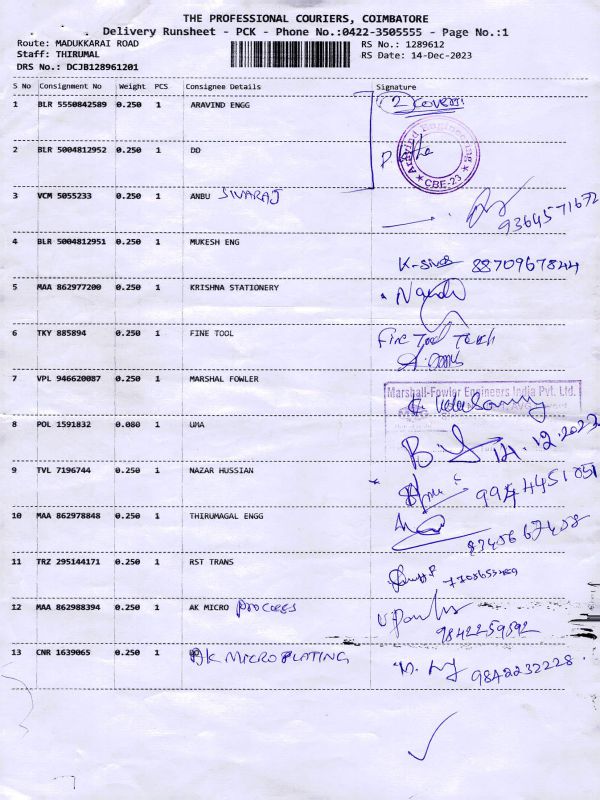 THE PROFESSIONAL COURIERS, COIMBATORE
Delivery Runsheet - PCK - Phone No.:0422-3505555 - Page No.:1
Route: MADUKKARAI ROAD RS No.: 1289612
Staff: THIRUMAL RS Date: 14-Dec-2023
DRS No.: DCJB128961201
S No Consignment No Weight PCS Consignee Details Signature
1 BLR 5550842589 0.250 1 ARAVIND ENGG (2 covers)
Aravind Engineering
CBE-23
2 BLR 5004812952 0.250 1 DD
3 VCM 5055233 0.250 1 ANBU SIVARAJ
9364571672
4 BLR 5004812951 0.250 1 MUKESH ENG
K-siva 8870967844
5 MAA 862977200 0.250 1 KRISHNA STATIONERY
6 TKY 885894 0.250 1 FINE TOOL Fine Tool
7 VPL 946620087 0.250 1 MARSHAL FOWLER
Marshall-Fowler Engineers India Pvt. Ltd.
8 POL 1591832 0.080 1 UMA
14.12.2023
9 TVL 7196744 0.250 1 NAZAR HUSSIAN
9944451051
10 MAA 862978848 0.250 1 THIRUMAGAL ENGG
11 TRZ 295144171 0.250 1 RST TRANS
12 MAA 862988394 0.250 1 AK MICRO PROCCES
9842259592
13 CNR 1639065 0.250 1 AK MICROPLATING
9842232228